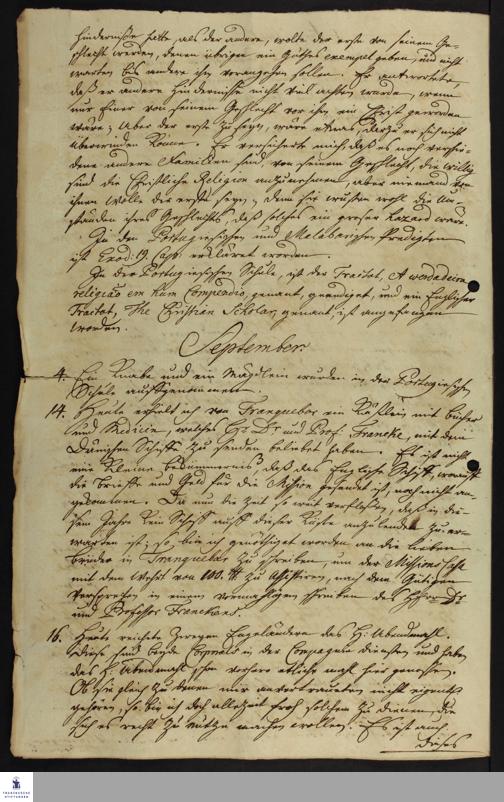 Hinderniße hätte, als der andere, wolte der erste von seinem Ge-
schlecht werden, denen übrigen ein Gutes exempel geben, und nicht
warten bis andere ihm vorangehen sollen. Er antwortete
daß er andere Hinderniße nicht viel achten würde, wenn
nur Einer von seinem Geschlecht vor ihm ein Christ geworden
wäre; Aber der erste zu seyn, wäre etwas, darzu er sich nicht
überwinden könne. Er versicherte mich daß es noch verschie-
dene andere Familien sind, von seinem Geschlecht, die willig
sind die Christliche Religion anzunehmen, aber niemand von
ihnen wolle der erste seyn; denn sie wüsten wohl die Um-
ständen ihres Geschlechts, daß solches ein großer Hazard wäre.
In den Portugiesischen und Malabarischen Predigten
ist Exod: 9. Cap. erkläret worden.
In der Portugiesischen Schule, ist der Tractat, A verdadeira
religiaõ em hum Compendio, genant, geendiget, und ein Englischer
Tractat, The Christian Scholar, genant, ist angefangen
worden.
September.
4. Ein Knabe und ein Mägdlein wurden in der Portugiesischen
Schule aufgenommen.
14. Heute erhielt ich von Tranquebar ein Kästlein mit bücher
und Medicin, welches Hr. Dr. und Prof: Francke, mit dem
Dänischen Schiffe zu senden beliebet haben. Es ist nicht
eine kleine bekümmerniß, daß das Englische Schiff, womit
die briefe und Geld für die Mission gesendet ist, noch nicht an-
gekommen. Da nun die Zeit so weit verfloßen, daß in die-
sem Jahre kein Schiff auf dieser Küste anzulenden zu er-
warten ist; so bin ich genöthiget worden an die lieben
brüder in Tranquebar zu schreiben, um der Missions Casse
mit dem Wehrt von 100. zu assistiren, nach dem Gütigen
Versprechen in einem vormahligen schreiben des Herrn Dr.
und Professor Franckens.
16. Heute reichete zweyen Engeländern das H: Abendmahl.
Diese sind beyde in der Compagnie diensten, und haben
das H: Abendmahl schon vorhero etliche mahl hier genoßen.
Ob sie gleich zu denen mir anvertraueten nicht eigentl.
gehören, so bin ich doch allezeit froh solchen zu dienen, die
sich es recht zu nutze machen wollen. Es ist auch
dieses
FRANCKESCHE
STIFTUNGEN